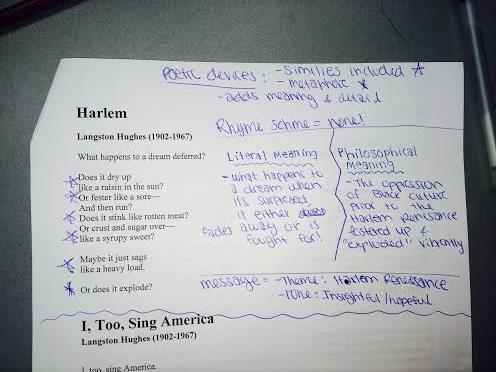 Poetic devices: - Similies included
- metaphoric
- adds meaning & detail
Harlem
Rhyme Schme = none!
Langston Hughes (1902-1967)
What happens to a dream deferred?
Does it dry up
like a raisin in the sun?
Or fester like a sore—
And then run?
Does it stink like rotten meat?
Or crust and sugar over—
like a syrupy sweet?
Maybe it just sags
like a heavy load.
Or does it explode?
Literal Meaning
- what happens to
a dream when
its surpresed
it either
fades away or is
fought for!
Philosophical
Meaning
- The oppression
of Black culture
prior to the
Harlem Renissance
festered up &
"exploded" vibrantly
message = - Theme: Harlem Renessance
- Tone: Insightful/hopeful
I, Too, Sing America
Langston Hughes (1902-1967)
I, too, sing America.